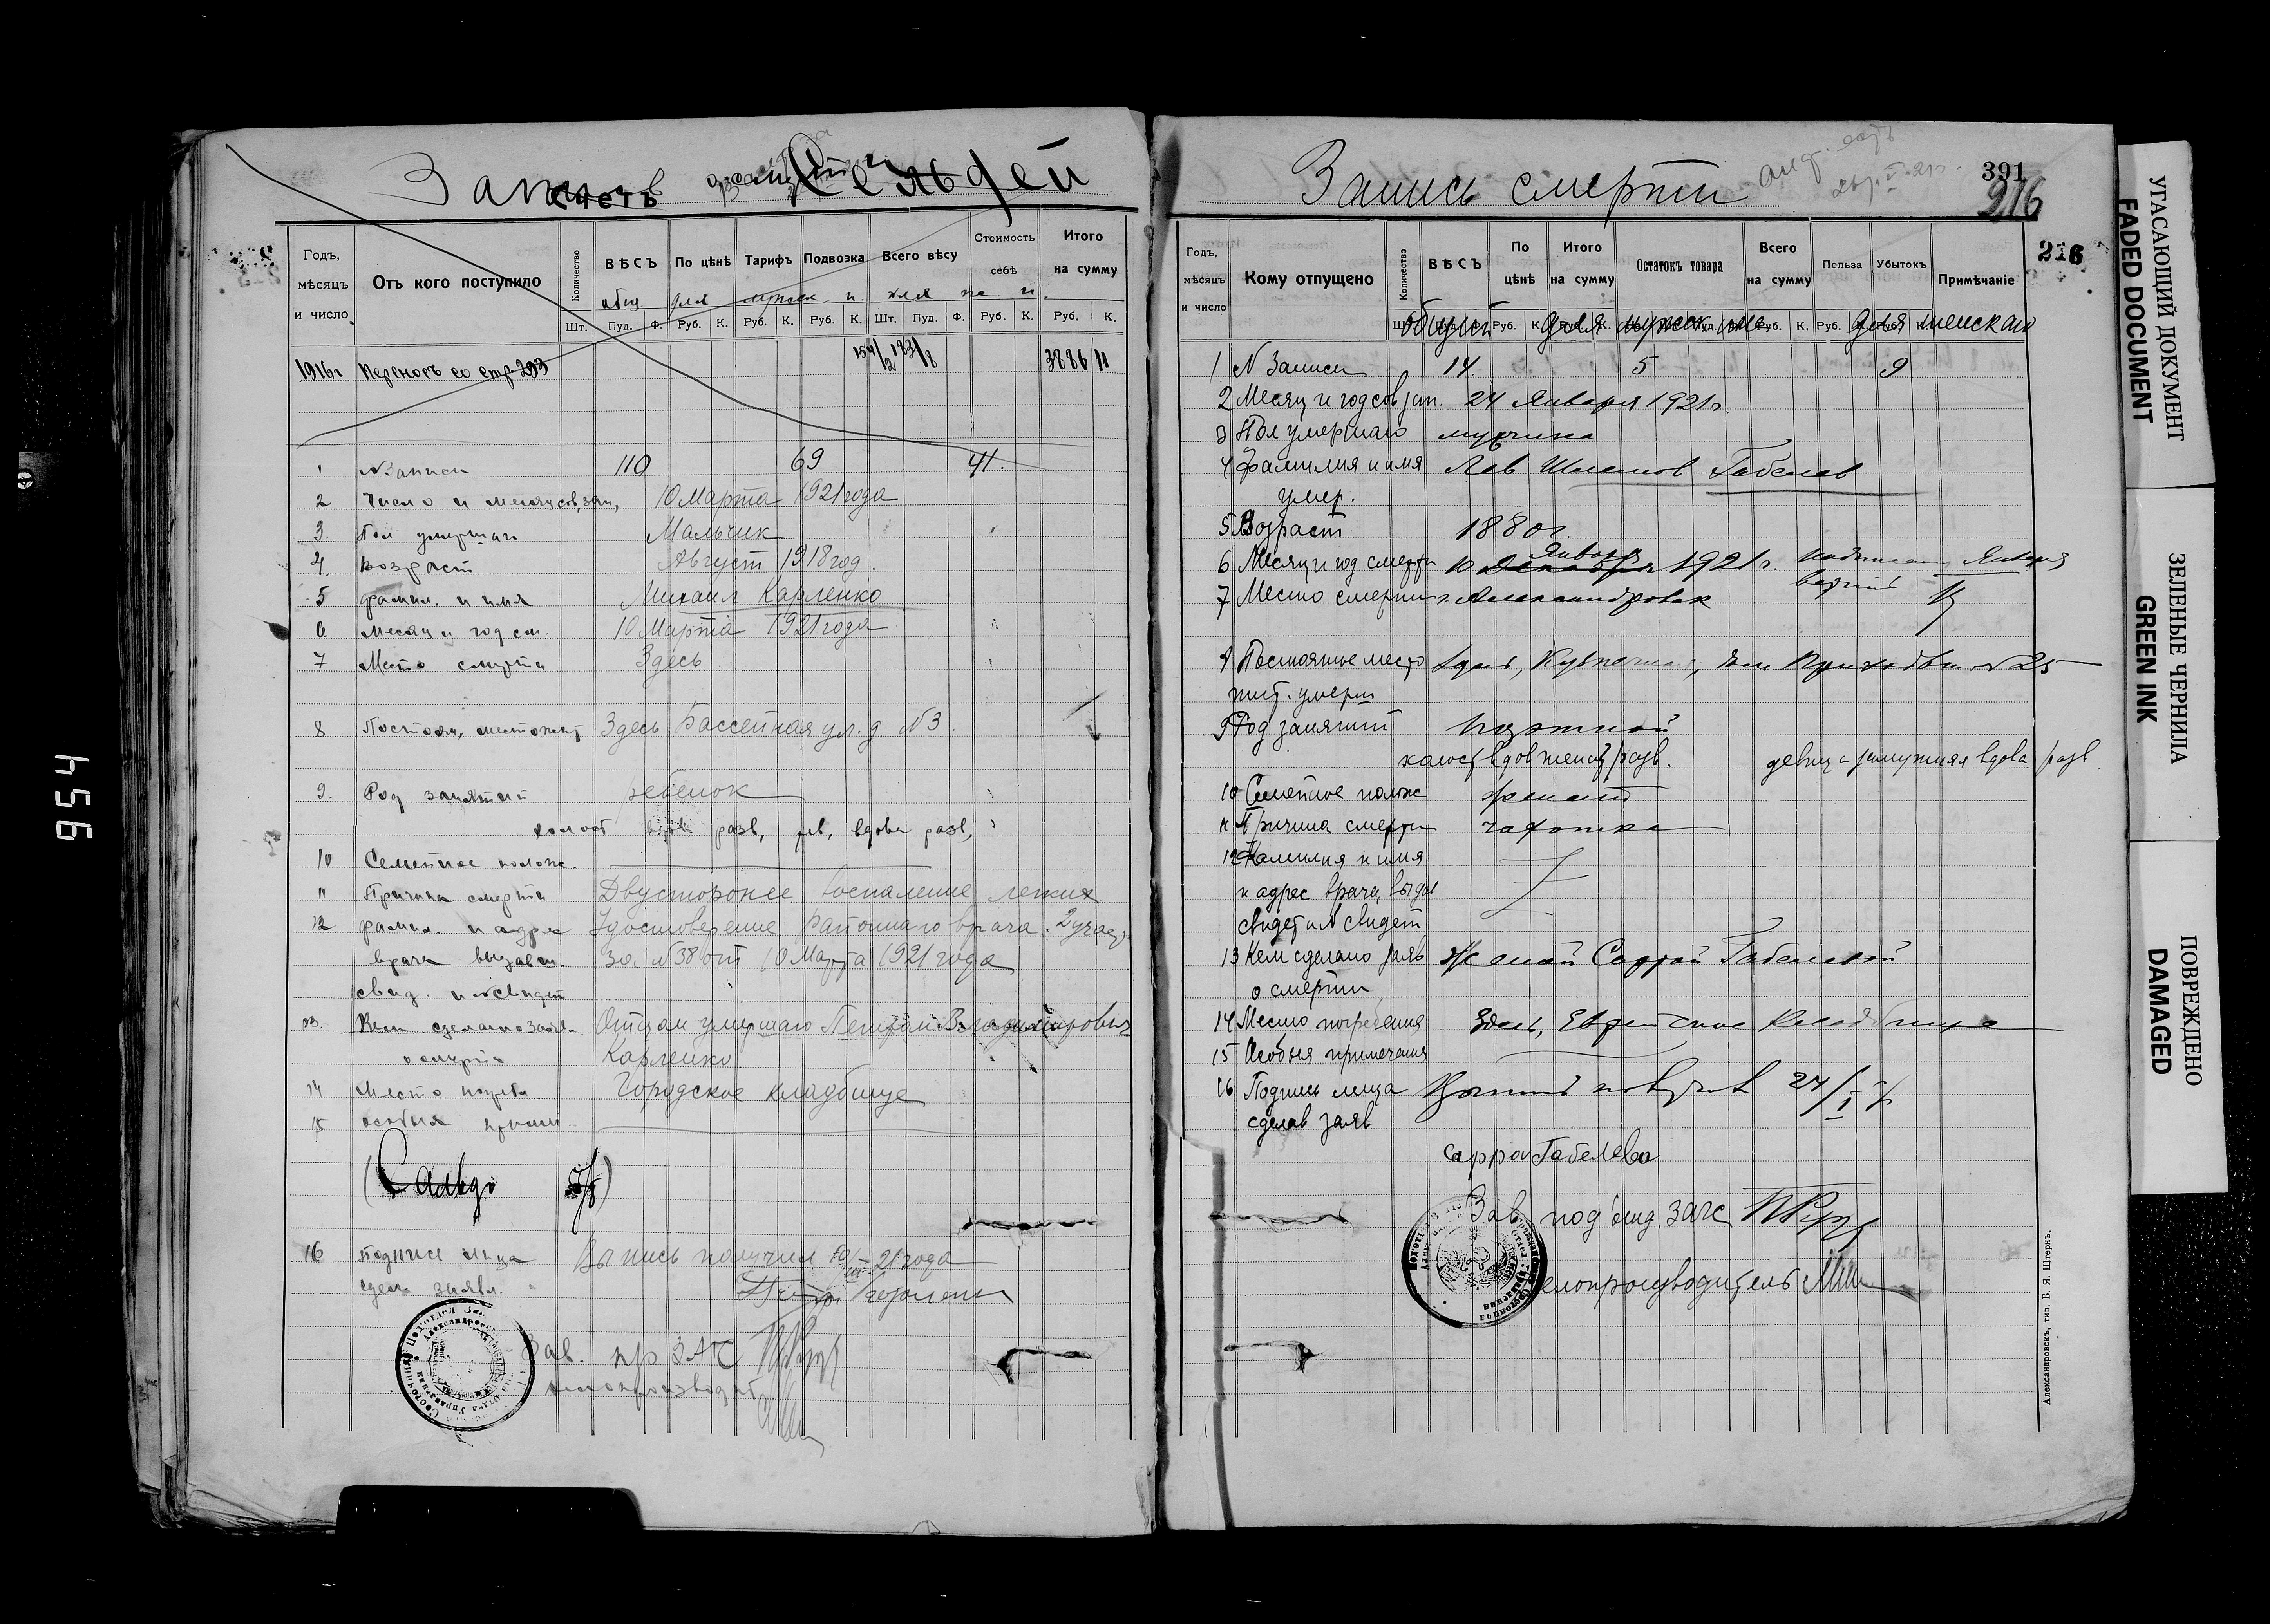 Сельдей
Счетъ
Годъ, мѣсяцъ и число
Отъ кого поступило
Количество
ВѢСЪ
По цѣнѣ
Тарифъ
Подвозка
Всего вѣсу
Стоимость себѣ
Итого на сумму
Шт. Пуд. Ф. Руб. К. Руб. К. Руб. К. Шт. Пуд. Ф. Руб. К. Руб. К.
1916г Переносъ со стр 293 3886 11
1 №Записи 110 69 41.
2 Число и месяц сов, зап, 10 Марта 1921 года
3. Пол умершаго Мальчик
4 Возраст Август 1918 год.
5 фамил. и имя Михаил Карленко
6. Месяц и год см. 10 Марта 1921 года
7 Место смерти Здесь
8 Постоян, местожит Здесь Бассейная ул. д №3.
9. Род занятий ребенок
холост вдов разв, дев, вдова разв,
10 Семейное полож.
11 Причина смерти Двусторонее воспаление легких
12 фамил. и адрес Удостоверение районнаго врача. 2 участ.
врача выдавш. за №38 от 10 Марта 1921 года
свид. и №свидет
13. Кем сделано заяв. Отцом умершаго Петром Владимировичем
о смерти Карленко
14 Место погреб. Городское кладбище
15 особыя примеч.
(Сальдо
16 подпись лица Выпись получил 10/III 21 года
сдел. заявл.
Зав. пр ЗАГС
делопроизводит
Запись смерти
391
216
216
Годъ, мѣсяцъ и число
Кому отпущено
Количество
ВѢСЪ
По цѣнѣ
Итого на сумму
Остатокъ товара
Всего на сумму
Польза
Убытокъ
Примѣчаніе
общий для мужск для женскаго
1 № Записи 14. 5 9
2 Месяц и год сов зап. 24 Января 1921г.
3 Пол умершаго мужчина
4 фамилия и имя Лев Шлемов Габелев
умер.
5 Возраст 1880г.
Января
6 Месяц и год смерти 10 Декабря 1921г. надписан Января
верить
7 Место смерти г. Александровск
8 Постоянное место здесь, Кузнечная, № 25
жит. умерш
9 Род занятий портной
холост вдов женат разв. девица замужняя вдова разв
10 Семейное полож женат
11 Причина смерти чахотка
12 Фамилия и имя
и адрес врача, выдав
свидет и № свидет
13 Кем сделано заяв Женой Саррой Габелевой
о смерти
14 Место погребения Здесь, Еврейское Кладбище
15 Особыя примечания
16 Подпись лица 24/I
сделав заяв
Сарра Габелева
Зав под'отд загс
Делопроизводитель
Александровскъ, тип. Б. Я. Штернъ.
УГАСАЮЩИЙ ДОКУМЕНТ
FADED DOCUMENT
ЗЕЛЕНЫЕ ЧЕРНИЛА
GREEN INK
ПОВРЕЖДЕНО
DAMAGED
456